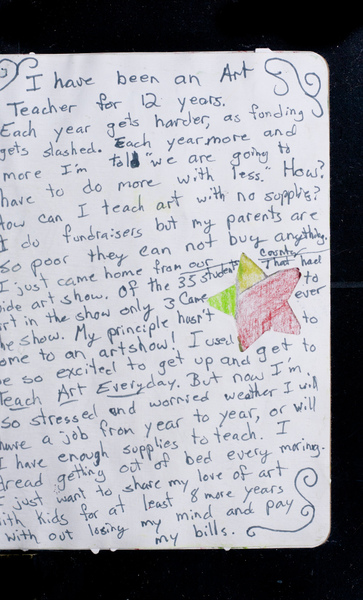 I have been an Art
Teacher for 12 years.
Each year gets harder, as funding
gets slashed. Each year more and
more I'm told "we are going to
have to do more with less." How?
How can I teach art with no supplies?
I do fundraisers but my parents are
so poor they can not buy anything.
I just came home from our County
ide art show. Of the 35 students that had
rt in the show only 3 came to
he show. My principle hasn't ever
ome to an artshow! I used to
be so excited to get up and get to
Teach Art Everyday. But now I'm
so stressed and worried weather I will
have a job from year to year, or will
I have enough supplies to teach. I
dread getting out of bed every morning.
I just want to share my love of art
ith kids for at least 8 more years
with out losing my mind and pay
my bills.